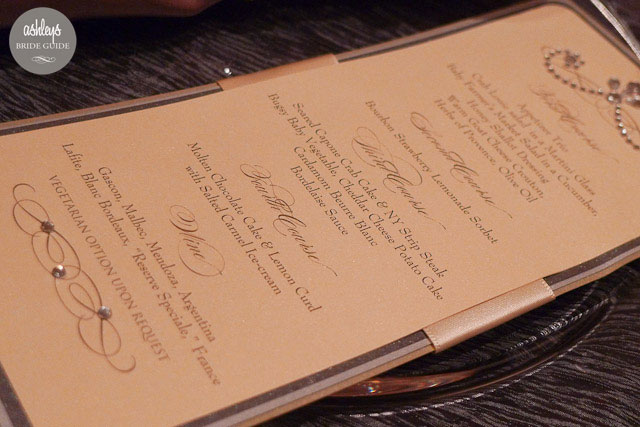 ashleys
BRIDE GUIDE
1st Course
Appetizer Trio
Crab Louie salad in a Martini Glass
Baby Farmer's Market Salad in a Cucumber,
Honey Shallot Dressing
Warm Goat Cheese Crouton
Herbs of Provence, Olive Oil
Second Course
Bourbon Strawberry Lemonade Sorbet
3rd Course
Seared Capone Crab Cake & NY Strip Steak
Bugsy Baby Vegetable, Cheddar Cheese Potato Cake
Cardamom Beurre Blanc
Bordelaise Sauce
4th Course
Molten Chocolate Cake & Lemon Curd
with Salted Carmel Ice-cream
Wine
Gascon, Malbec, Mendoza, Argentina
Lafite, Blanc Bordeaux, "Reserve Speciale," France
VEGETARIAN OPTION UPON REQUEST